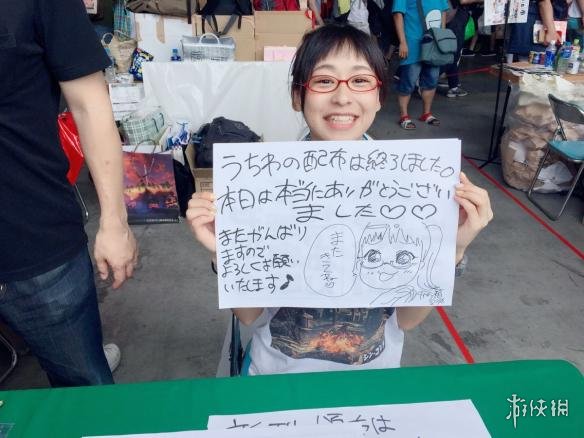 うちわの配布は終了しました。
本日は本当にありがとうござい
ました♡♡
またがんばり
ますので
よろしくお願い
いたします♪
また
きてね
游侠網